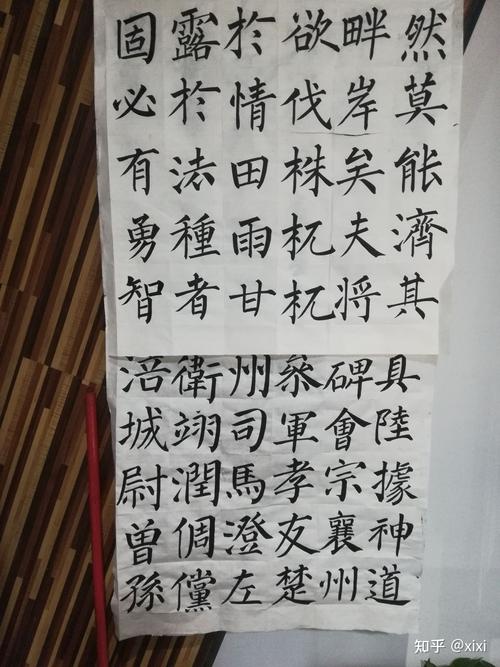 然莫能濟其
畔岸矣夫將
欲伐株杌杌
於情田雨甘
露於法種者
固必有勇智
具陸據神道
碑會宗襄州
叅軍孝友楚
州司馬澄左
衛翊潤倜儻
涪城尉曾孫
知乎 @xixi